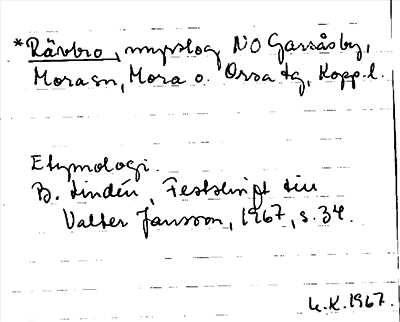 *Rävbro, myrslog NO Garsåsby,
Morasn, Mora o. Orsa tg, Kopp.l.
Etymologi.
B. Lindén, Festskrift till
Valter Jansson, 1967, s. 34.
K.1967.